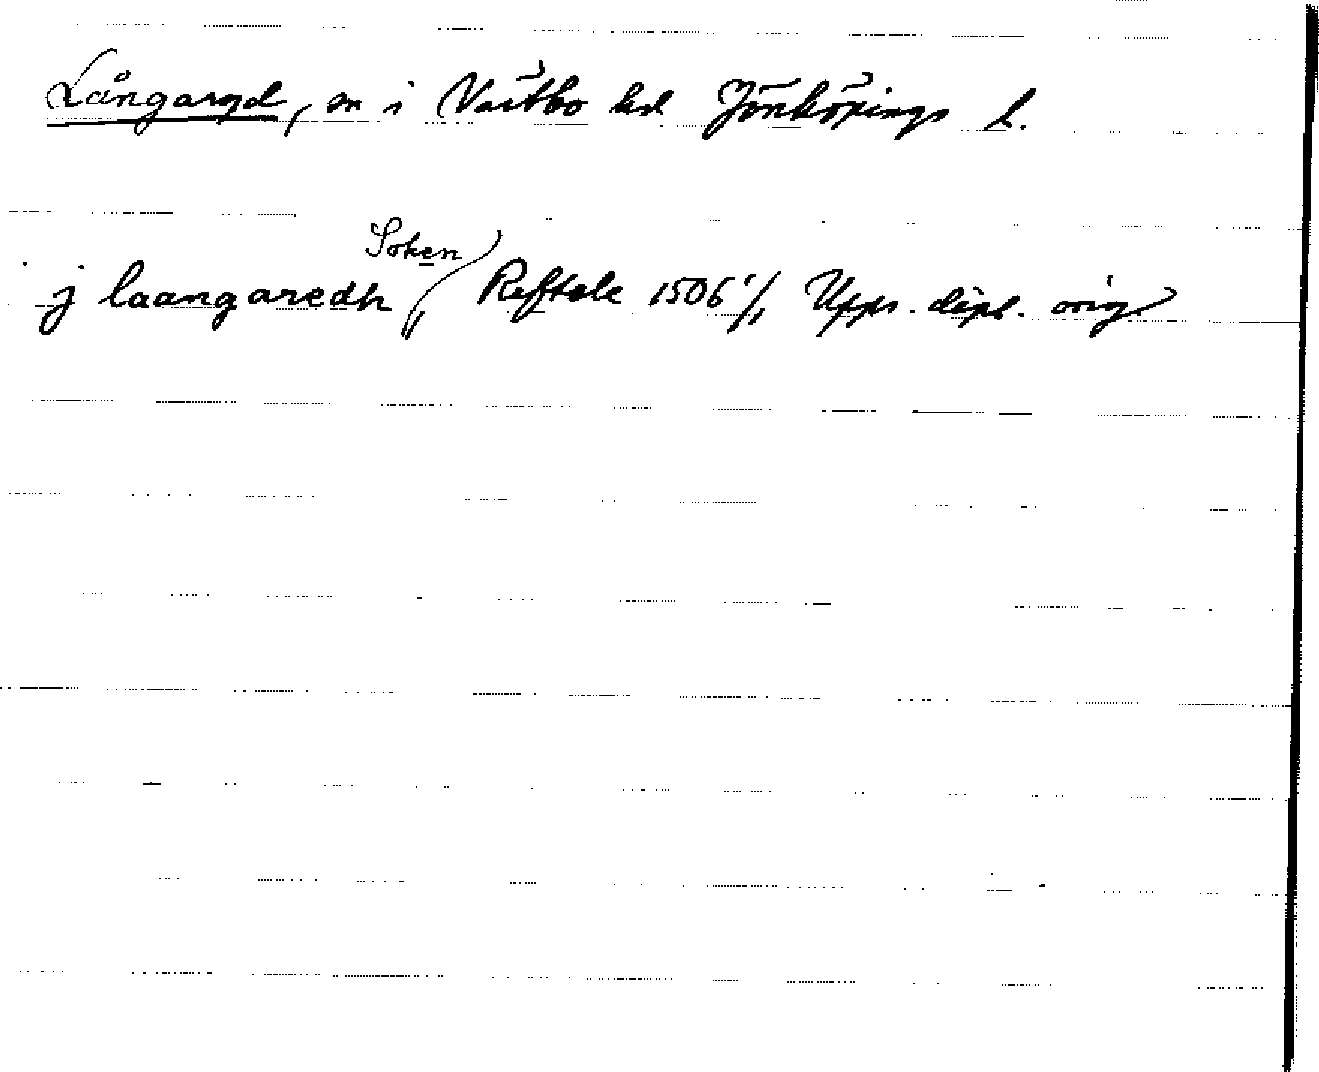 Långaryd, sn i Västbo hd Jönköpings l.
j laangaredh Soken, Reftele 1506 1/1 Upps. dipl. orig